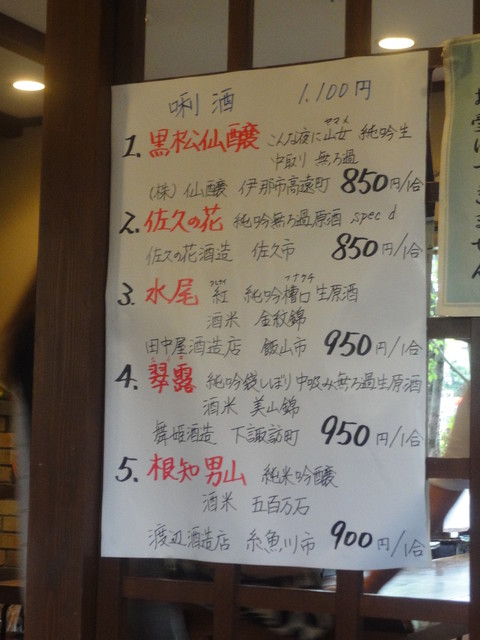 唎酒 1.100円
1. 黒松仙醸 こんな夜に山女 純吟生
ヤマメ
中取り 無ろ過
(株) 仙醸 伊那市高遠町 850円/1合
2. 佐久の花 純吟無ろ過原酒 spec d
佐久の花酒造 佐久市 850円/1合
3. 水尾 紅 純吟槽口生原酒
フナクチ
酒米 金紋錦
田中屋酒造店 飯山市 950円/1合
4. 翠露 純吟袋しぼり中汲み無ろ過生原酒
酒米 美山錦
舞姫酒造 下諏訪町 950円/1合
5. 根知男山 純米吟醸
酒米 五百万石
渡辺酒造店 糸魚川市 900円/1合